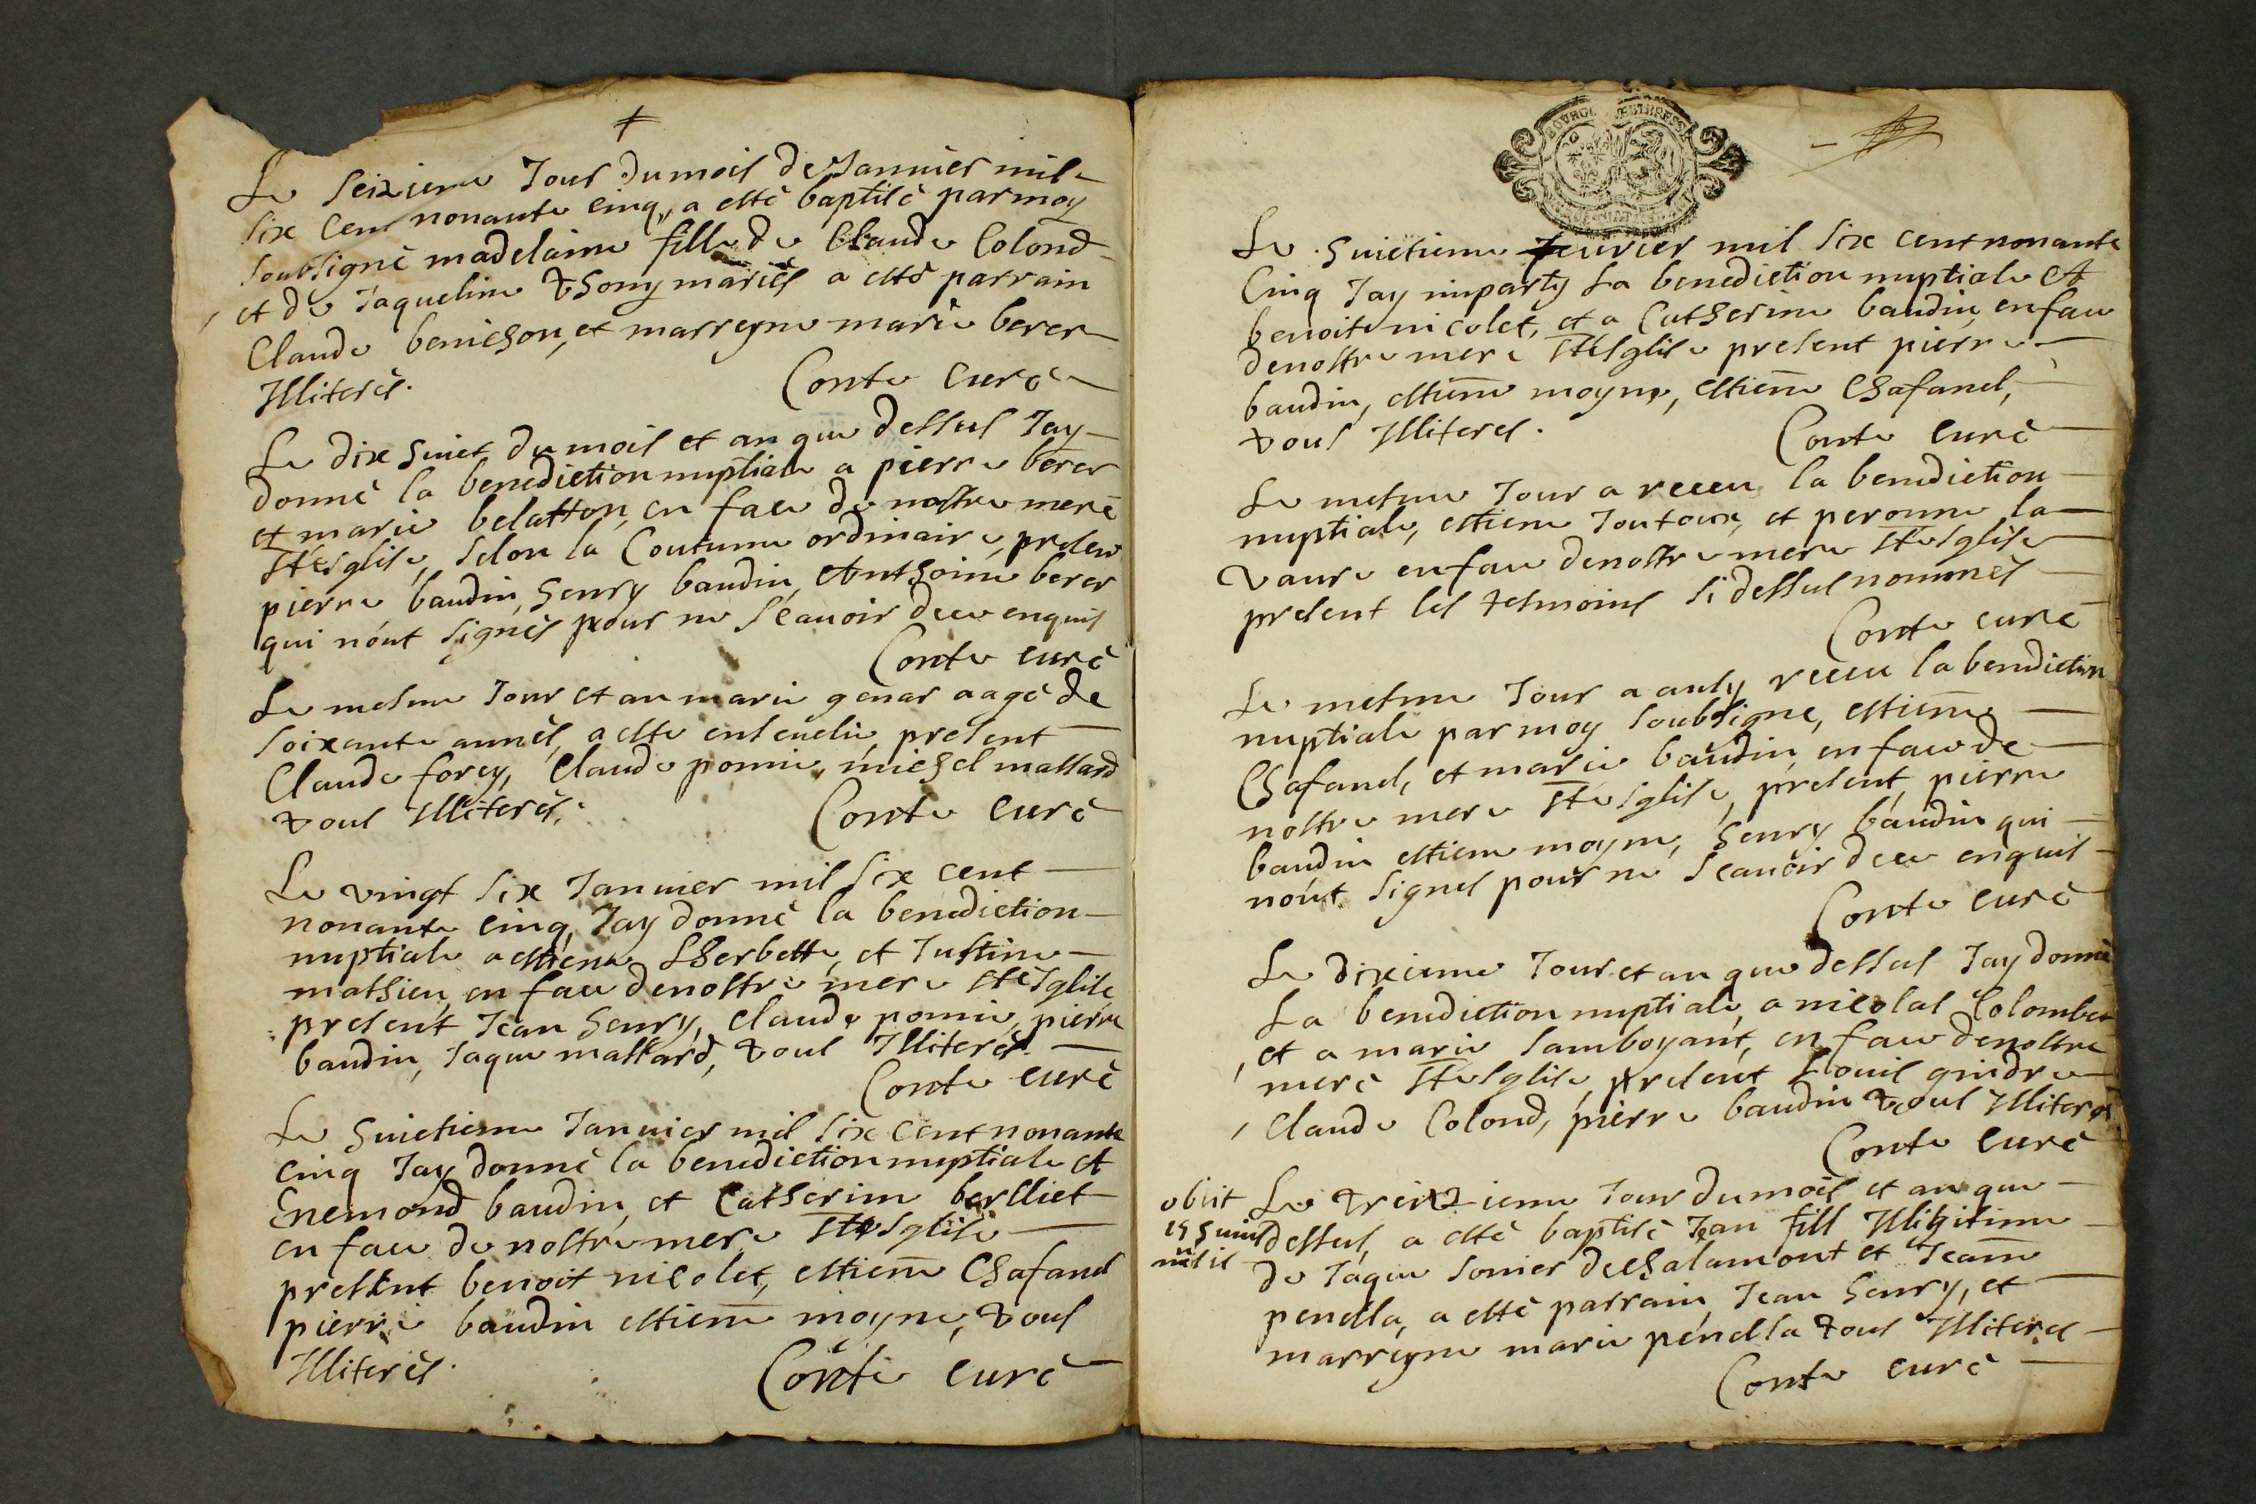 Le seizieme Jour du mois de Jannier mil
six cent nonante cinq, a esté baptisé par moy
soubsigné madelaine fille de Claude Colond
et de Jaqueline thomy mariés a esté parrain
Claude benichon, et marreyne marie berer
Illiterés. Conte curé
Le dix huiet du mois et an que dessus Jay
donné la benediction nuptiale a pierre berer
et marie belatton, en face de nostre mere
ste esglise, selon la Coutume ordinaire, presen
pierre baudin, henry baudin, Anthoine berer
qui n'ont signés pour ne sçauoir de ce enquis
Conte curé
Le mesme Jour et an marie genar aagé de
soixante annés, a esté enseuelie, present
Claude forey, Claude pomie, michel mallard
tous Illiterés. Conte curé
Le vingt six Januier mil six cent
nonante cinq, Jay donné la benediction
nuptiale a estiene Lherbette, et Justine
mathieu, en face de nostre mere ste Iglise
present Jean henry, Claude pomie, pierre
baudin, Jaque mallard, tous Illiterés.
Conte curé
Le huietieme Januier mil six cent nonante
cinq Jay donné la benediction nuptiale A
Enemond baudin, et Catherine berlliet
en face de nostre mere ste esglise
present benoit nicolet, estienne Chafanel
pierre baudin estienne moyne, tous
Illiterés. Conte curé
BOURG BRESSE
Le huietieme feurier mil six cent nonante
Cinq Jay imparty La benediction nuptiale A
benoit nicolet, et a Catherine baudin, en face
de nostre mere ste esglise present pierre
baudin, estienne moyne, estienne Chafanel,
tous Illiteres. Conte curé
Le mesme Jour a receu la benediction
nuptiale, estiene Joutoux, et peronne la
vaure en face de nostre mere ste esglise
present les tesmoins si dessus nommés
Conte curé
Le mesme Jour a ausy receu la benediction
nuptiale par moy soubsigne, estienne
Chafanel, et marie baudin, en face de
nostre mere ste esglise, present, pierre
baudin estiene moyne, henry baudin qui
n'ont signes pour ne sçauoir de ce enquis
Conte curé
Le dixieme Jour et an que dessus Jay donné
La benediction nuptiale, a nicolas Colombet
et a marie Lamboyant, en face de nostre
mere ste esglise, present Louis gindre
Claude Colond, pierre baudin tous Illiterés
Conte curé
obiit
19 huius
mensis
Le treizieme Jour du mois et an que
dessus, a esté baptisé Jean fill Illigitime
de Jaque sonier de Chalamont et Jeanne
penella, a esté parrain Jean henry, et
marreyne marie penella tous Illiteres
Conte curé